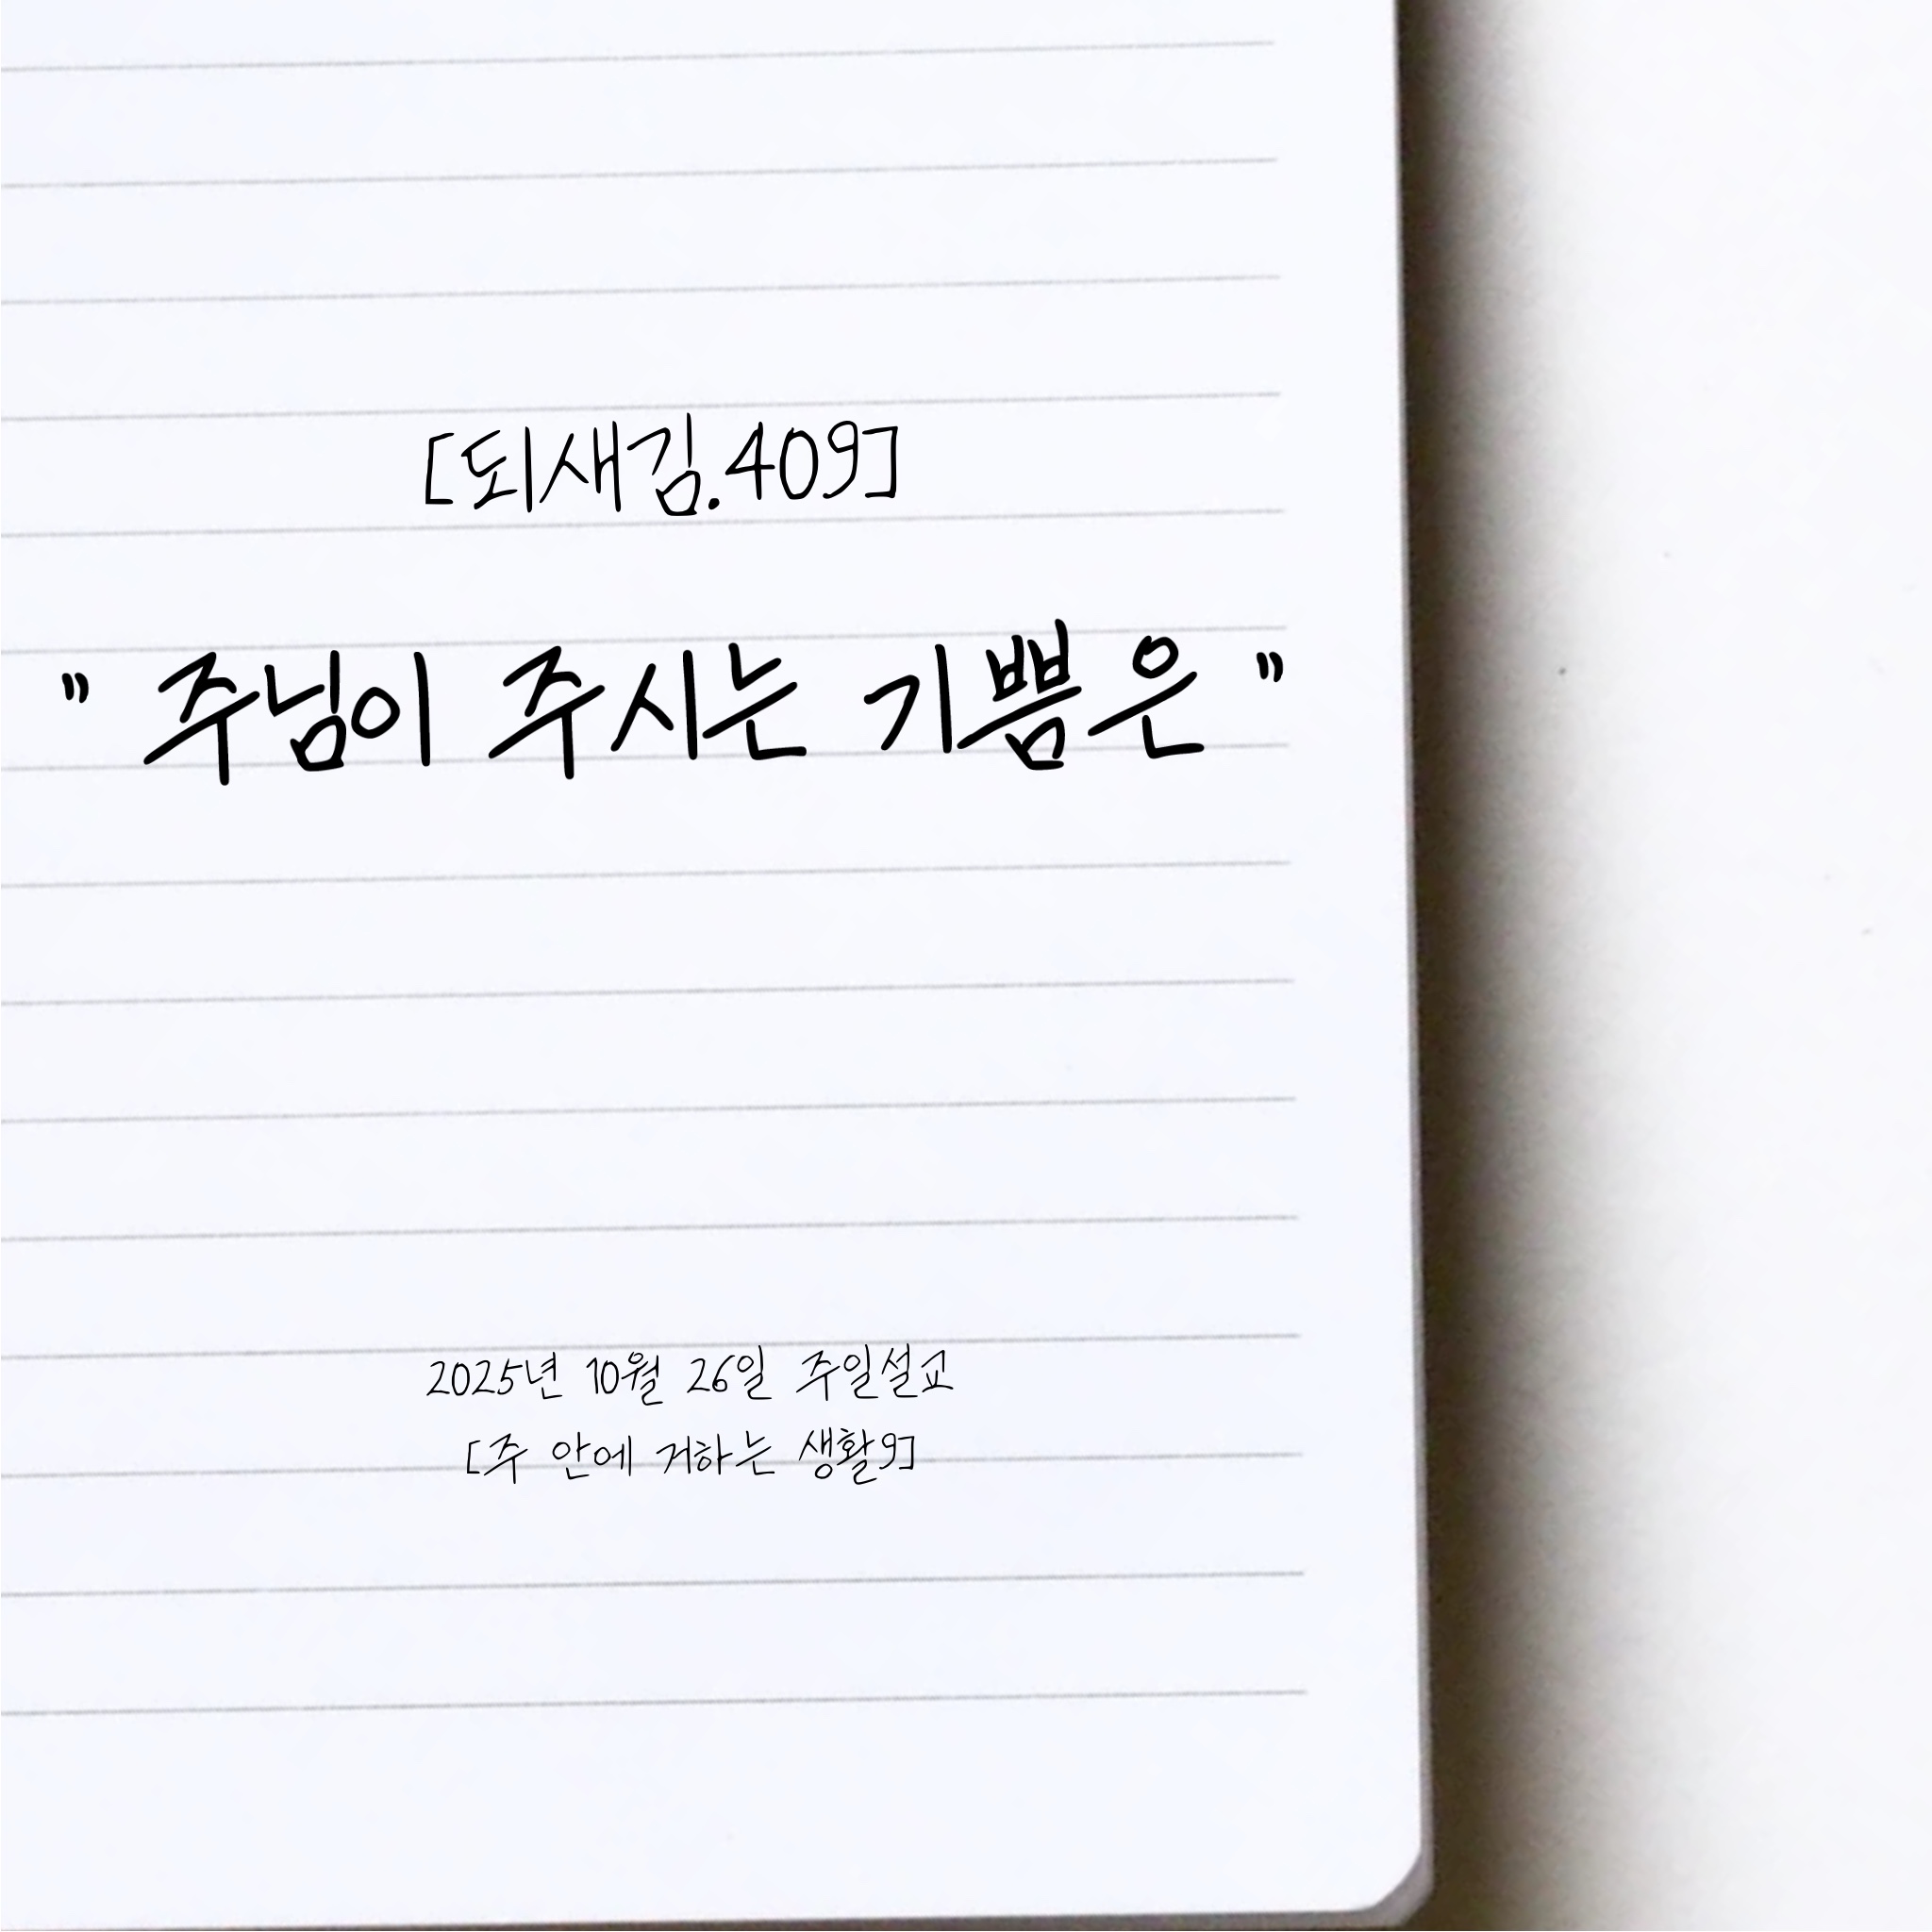 [되새김.409]
" 주님이 주시는 기쁨은 "
2025년 10월 26일 주일설교
[주 안에 거하는 생활9]